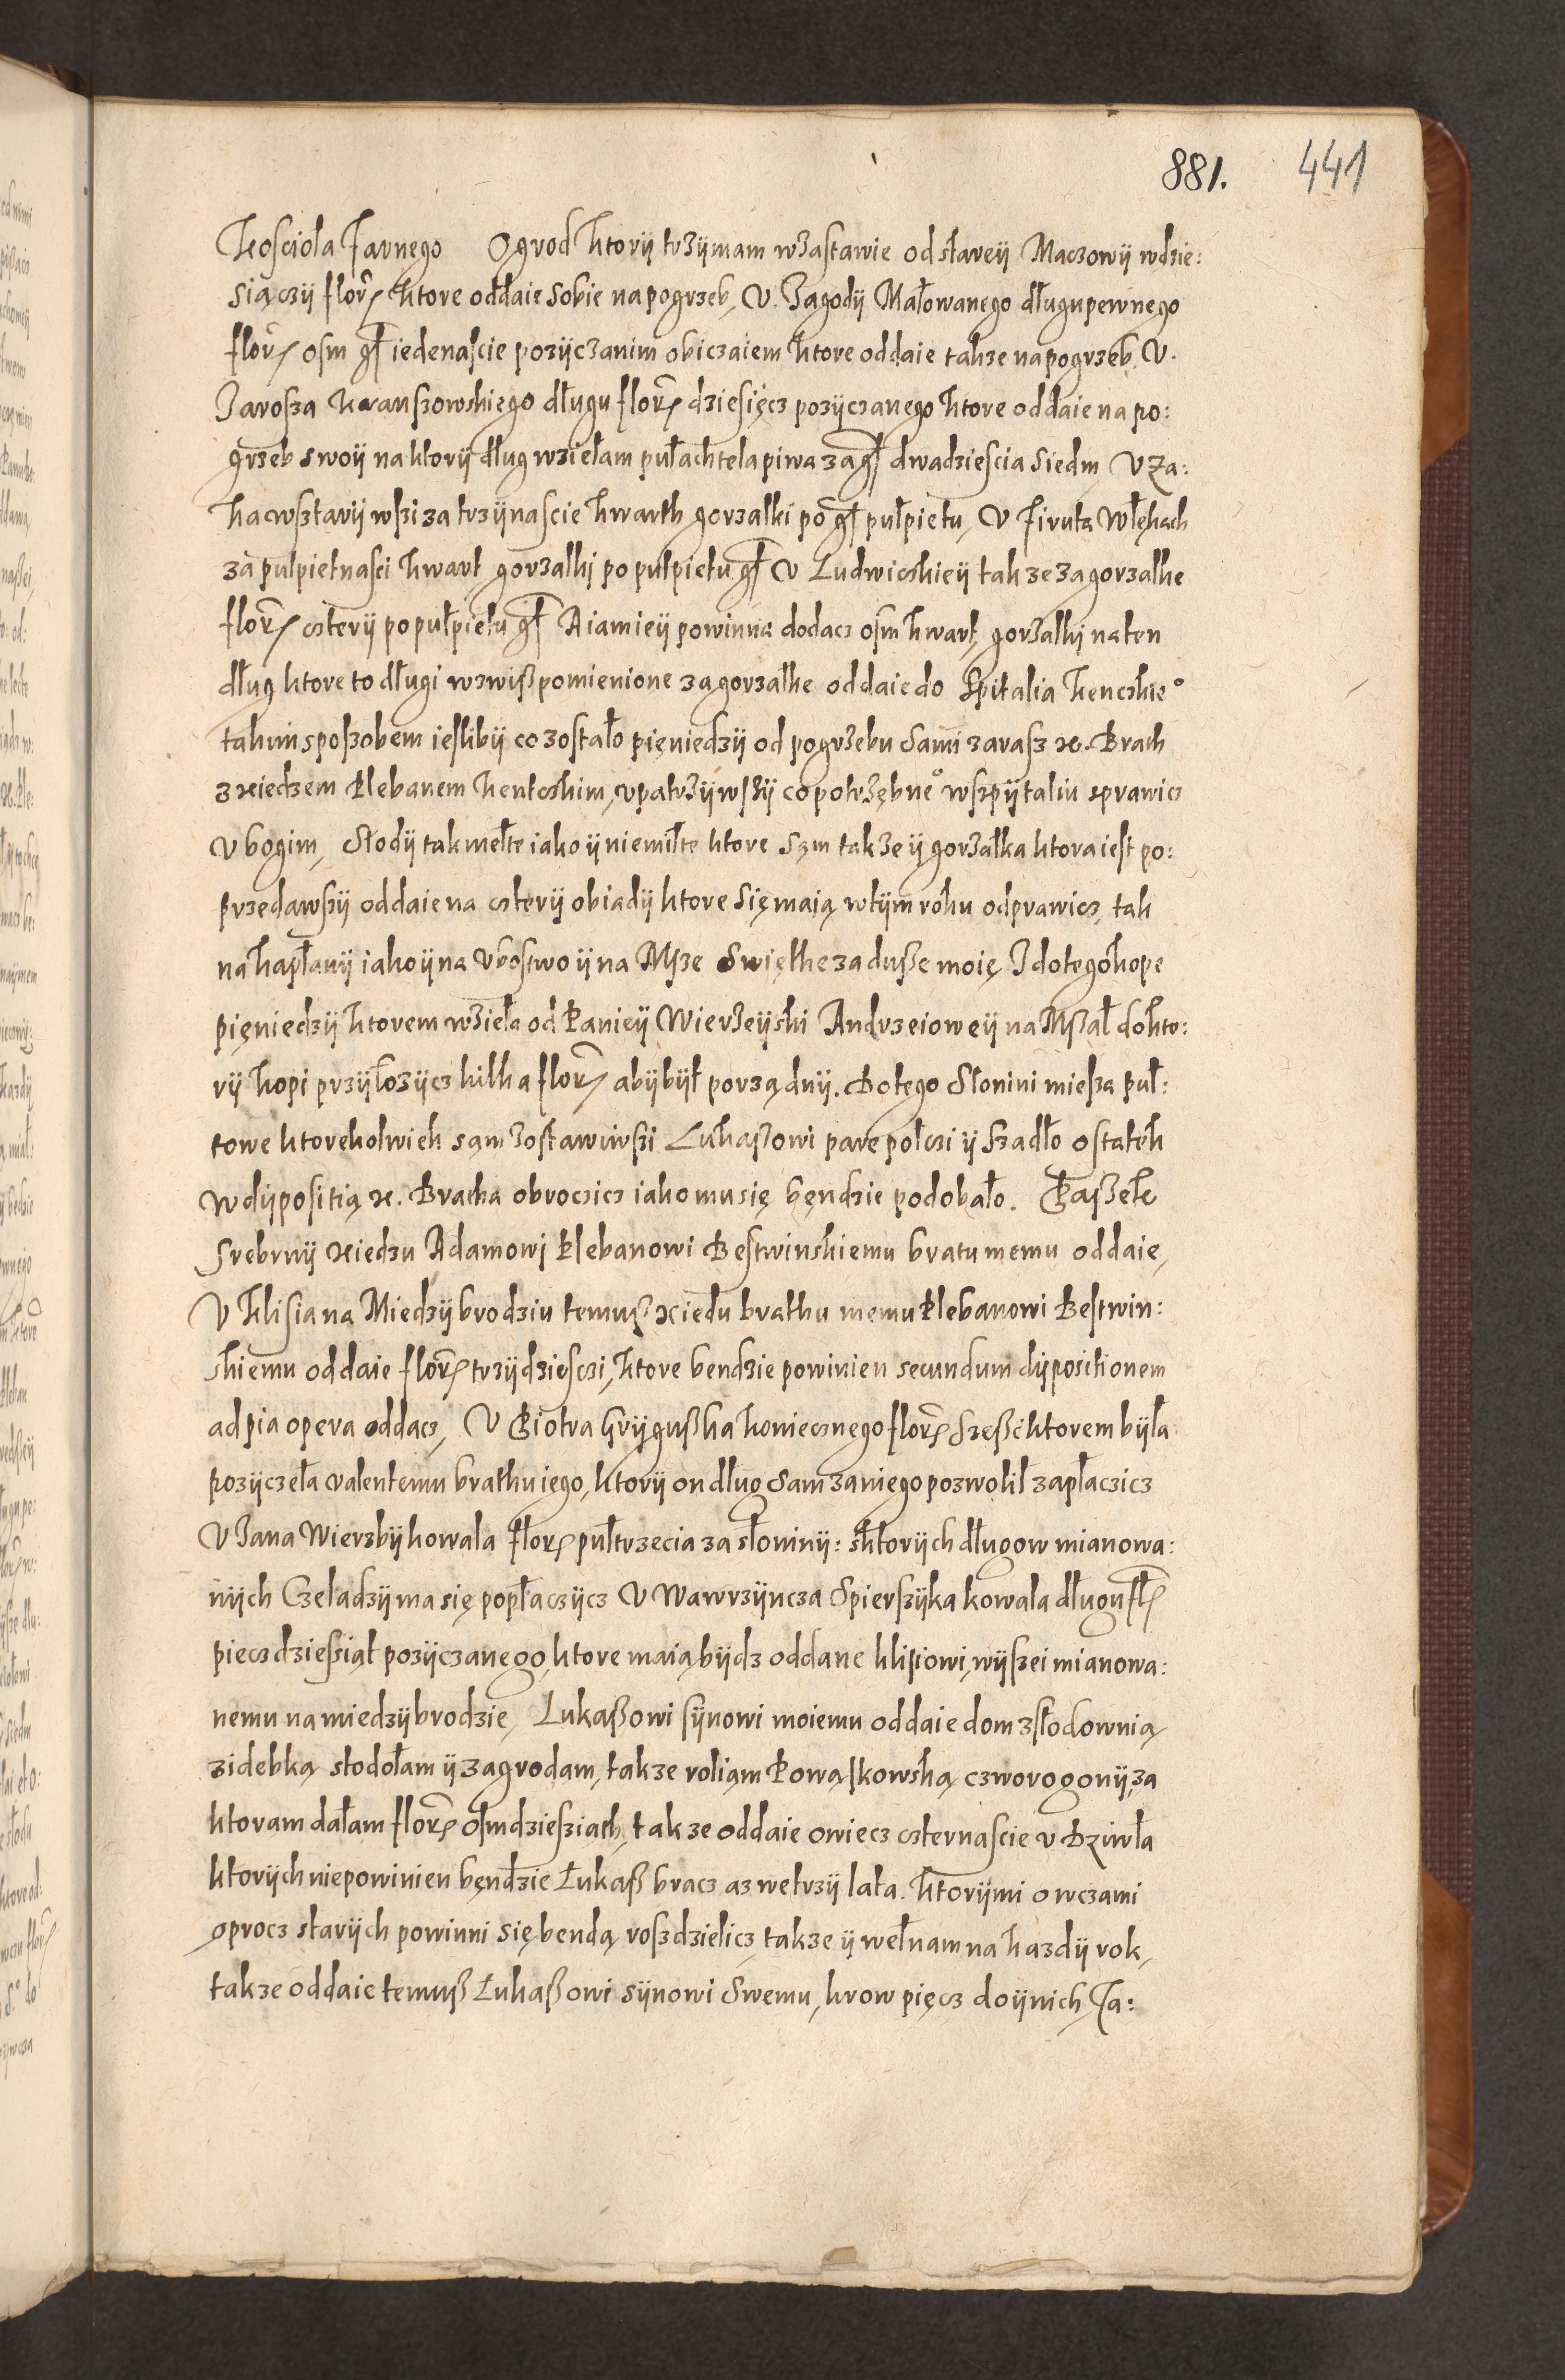 881. 441
Kosciola Farnego Ogrod ktorÿ trzÿmam wzastawie od starej Maczowÿ wdzie:
siączÿ flor: ktore oddaie sobie na pogrzeb, V. Jagodÿ Małowanego długu pewnego
flor: osm gr iedenascie pozÿczanim obiczaiem ktore oddaie takze na pogrzeb. V.
Jarosza długu flor: dziesięcz pozÿczanego ktore oddaie na po:
grzeb swoÿ na ktorÿ dług wziełam pułachtela piwa za gr dwadziescia siedm, V Za:
ka wstarÿ wsi za trzÿnascie kwarth gorzalki po gr pułpietu, V Firuta Włękach
za pulpietnasci kwart gorzalkj po pulpietu gr V Ludwiczkieÿ takze za gorzalke
flor: czterÿ po pułpietu gr A ia mieÿ powinna dodacz osm kwart, gorzalkj na ten
dług ktore to długi wzwiß pomienione za gorzalke oddaie do Spitalia Kenczkie°
takim sposzobem ieslibÿ co zostało pięniedzÿ od pogrzebu sami zarasz x. Brach
z xiedzem Plebanem Kentczkim, vpatrzÿwszÿ co potrzębne° wszpÿtaliu sprawicz
vbogim, Słodÿ tak mełte iako ÿ niemilte ktore sąm takze ÿ gorzałka ktora iest po:
przedawszÿ oddaie na czterÿ obiadÿ ktore się maią wtÿm roku odprawicz, tak
na kapłanÿ iako ÿ na Vbostwo ÿ na Msze Swiętke za dusze moię I do tego kope
pięniedzÿ ktorem wzieła od Panieÿ Wierzeÿski Andrzeioweÿ na Mszał do kto:
rÿ kopi przÿłozÿcz kilka flor: abÿ bÿł porządnÿ. Do tego Słonini miesza puł:
towe ktorekolwiek sąm zostawiwszi Lukaszowi pare połczi ÿ szadło ostatek
w dÿpositią x. Bracka obroczicz iako mu się bęndzie podobało. Paßetc
srebrnÿ xiedzu Adamowi Plebanowi Bestwinskiemu bratu memu oddaie,
V Klisia na Miedzÿbrodziu temuß xiedu brathu memu Plebanowi Bestwin:
skiemu oddaie flor: trzÿdziesczi, ktore bendzie powinien secundum dÿpositionem
ad pia opera oddacz, V Piotra Grÿgußka koniecznego flor: szeßc ktorem bÿła
pozÿczeła valentemu brathu iego, ktorÿ on dług sam za niego pozwolił zapłaczicz
V Jana Wierzbÿ kowala flor: pułtrzecia za słoninÿ: s ktorÿch długow mianowa:
nÿch Czeladzÿ ma się popłaczÿcz V Wawrzÿncza Spierszÿka kowala długu fl:
piecz dziessiąt pozÿczanego, ktore maią bÿdz oddane klisiowi, wÿszei mianowa:
nemu na miedzÿbrodzie, Lukaßowi sÿnowi moiemu oddaie dom zsłodownią
z idebką stodołam ÿ zagrodam, takze roliąm czworogonÿ, za
ktoram dałam flor: osmdziesziath, takze oddaie owiecz czternascie v Dziwla
ktorÿch nie powinien bęndzie Łukaß bracz az we trzÿ lata. ktorÿmi owczami
oprocz starÿch powinni się bendą rozdzielicz takze ÿ wełnam na kazdÿ rok,
takze oddaie temuß Łukaßowi sÿnowi swemu, krow pięcz doÿnich, Ja: